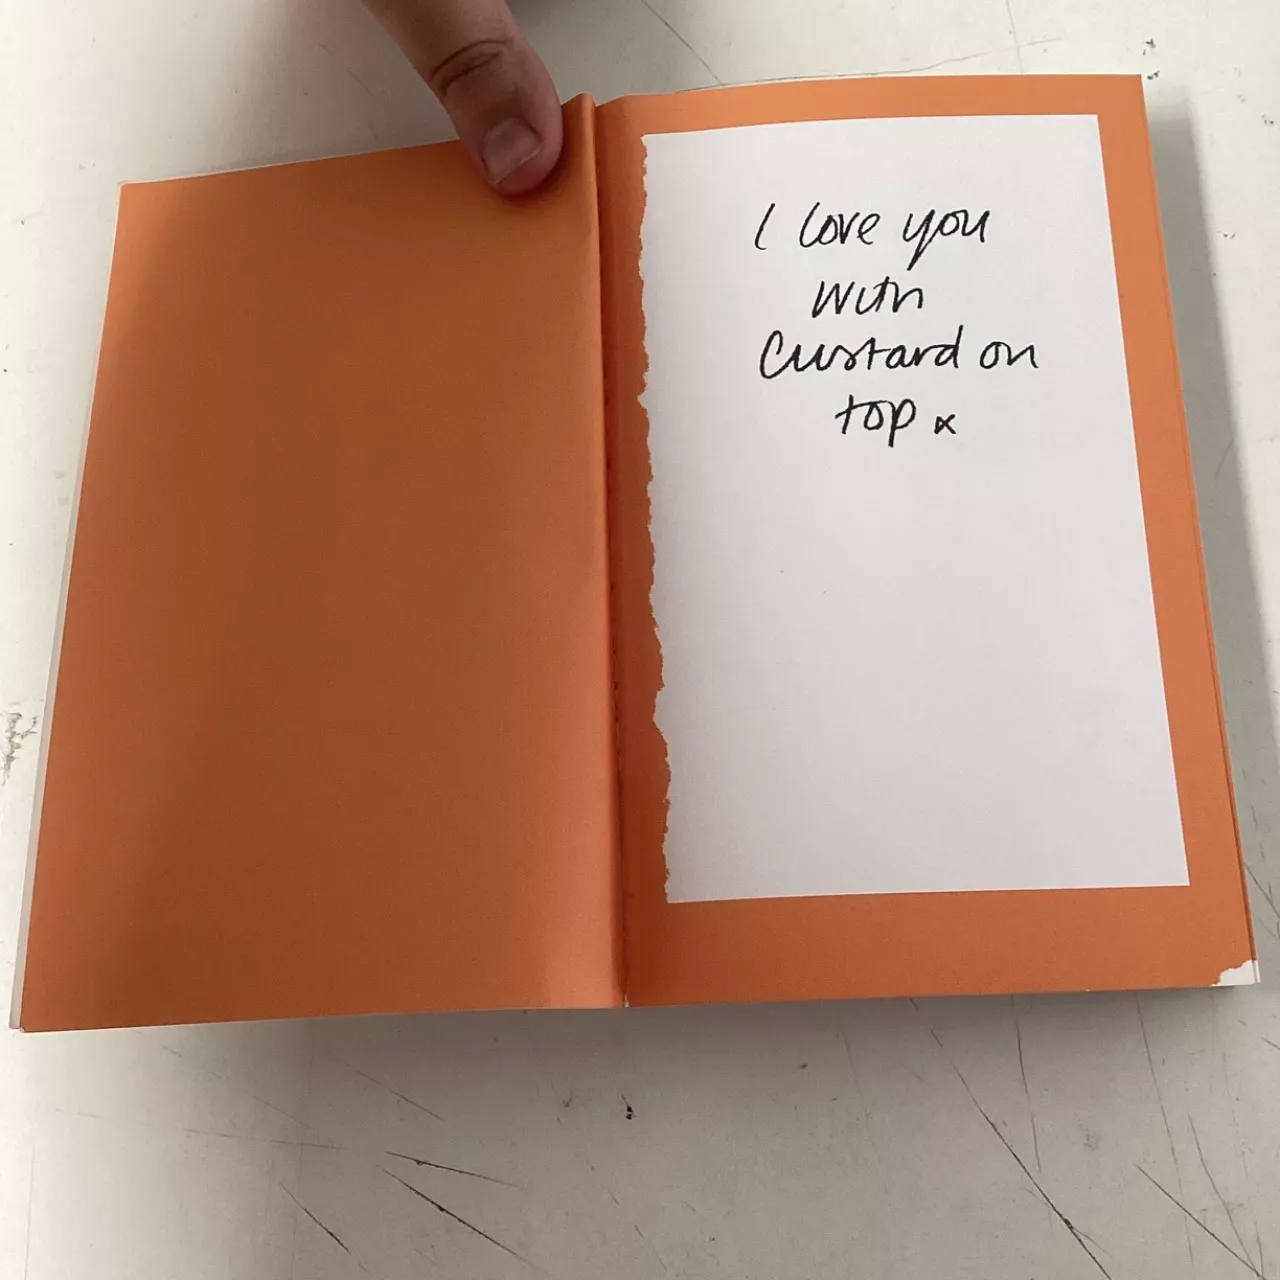 I love you
with
Custard on
top x